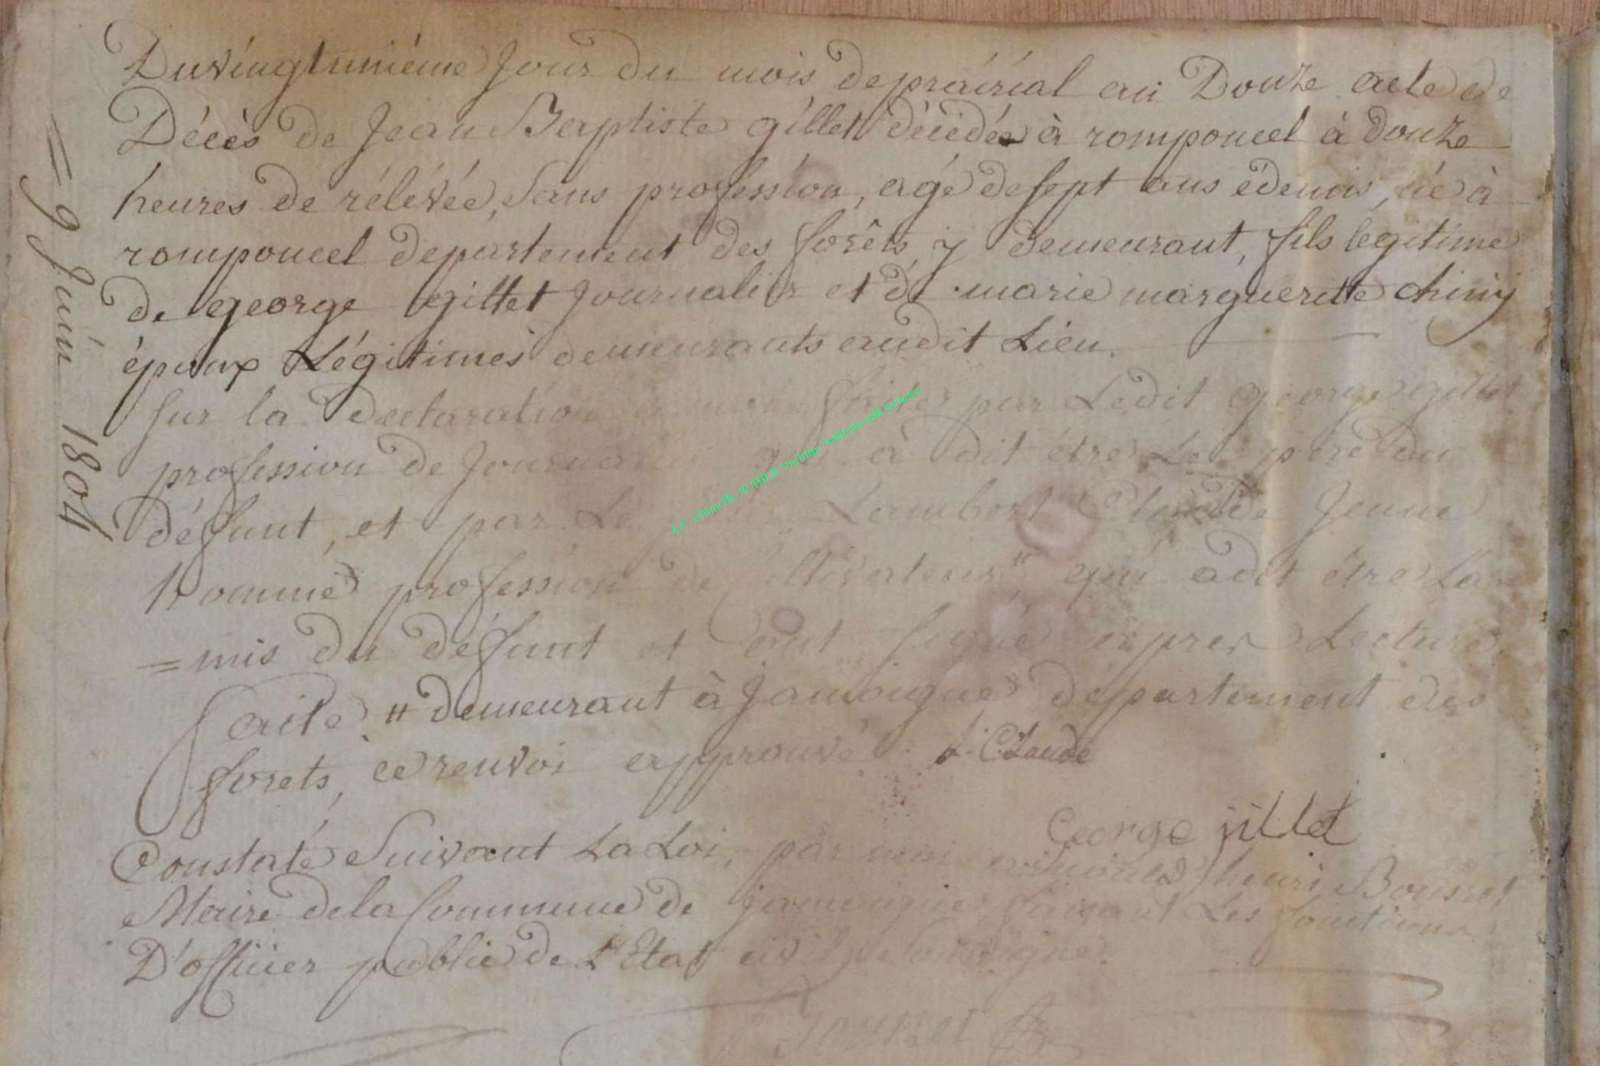 Du vingtunième jour du mois de prairial an Douze acte de
Décès de Jean Baptiste gillet décédé à rompoucel à douze
heures de rélévée, Sans profession, agé de sept ans édemis, né à
rompoucel departement des forêts y demeurant, fils legitime
de george gillet journalier et de marie marguerite chiny
époux Légitimes demeurants audit Lieu.
sur la declaration par Ledit george gillet
profession de Journalier qui à dit étre Le pere du
défunt, et par Le Lambert Claude Jeune
homme profession de cultivateur # qui a dit étre La
=mis du défunt et ont signé apres Lecture
faite. # demeurant à Jamoigne département des
forets, ce renvoi approuvé L: Claude
George jillet
Constaté Suivant La Loi, par moi henri
Maire de la Commune de jamoigne faisant Les fonctions
D'officier public de L'Etat civil
= 9 Juin 1804